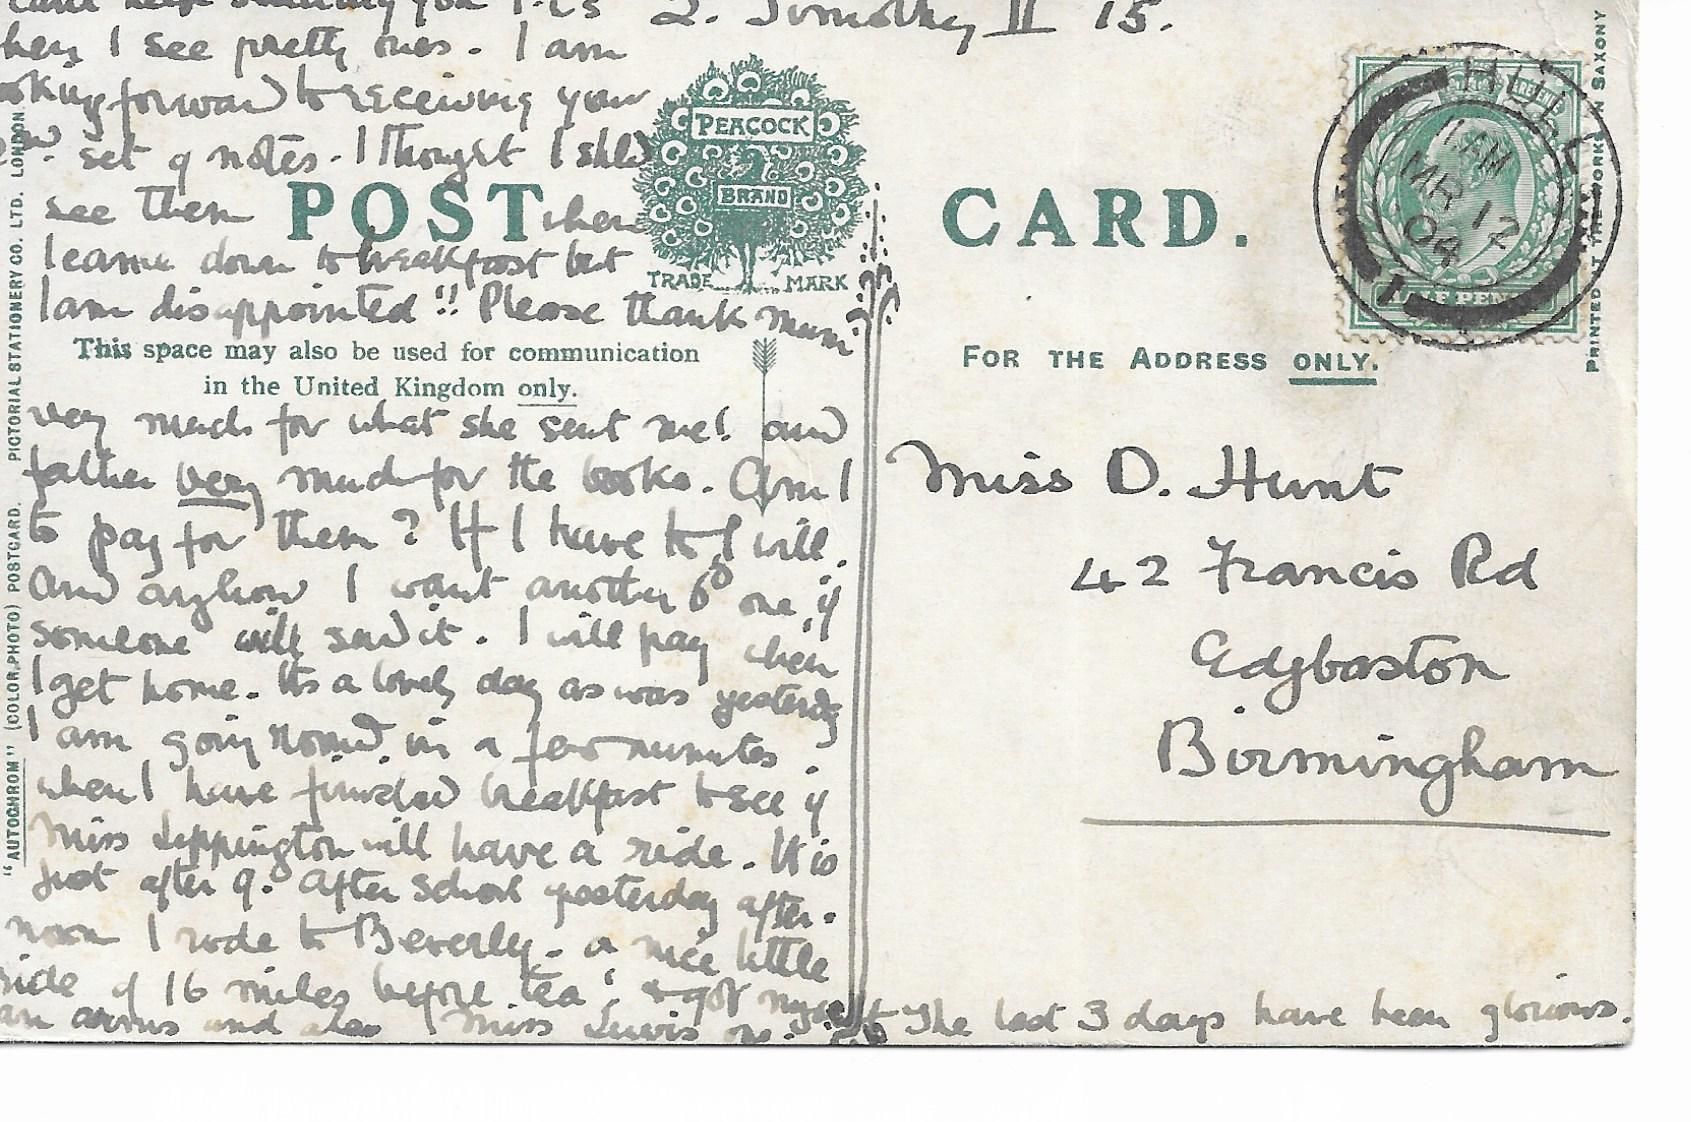 cant help sending you P.Cs
when I see pretty ones. I am
looking forward to receiving your
set of notes. I thought I shld
see them when
I came down to breakfast but
I am disappointed!! Please thank mum
very much for what she sent me! and
father very much for the books. Am I
to pay for them? If I have to I will.
And anyhow I want another 6d one, if
someone will send it. I will pay when
I get home. Its a lovely day as was yesterday
I am going round in a few minutes
when I have finished breakfast to see if
Miss Lippington will have a ride. It is
just after 9. After school yesterday after-
noon I rode to Beverly - a nice little
ride of 16 miles before tea! & got myself
an and also Miss Lewis one.
2. Timothy II 15.
The last 3 days have been glorious.
POST CARD.
PEACOCK
BRAND
TRADE MARK
This space may also be used for communication
in the United Kingdom only.
FOR THE ADDRESS ONLY.
Miss D. Hunt
42 Francis Rd
Edgbaston
Birmingham
HULL
11 AM
MR 12
04
1
HALF PENNY
"AUTOCHROM" (COLOR PHOTO) POSTCARD. PICTORIAL STATIONERY CO. LTD. LONDON
PRINTED AT THE WORKS IN SAXONY